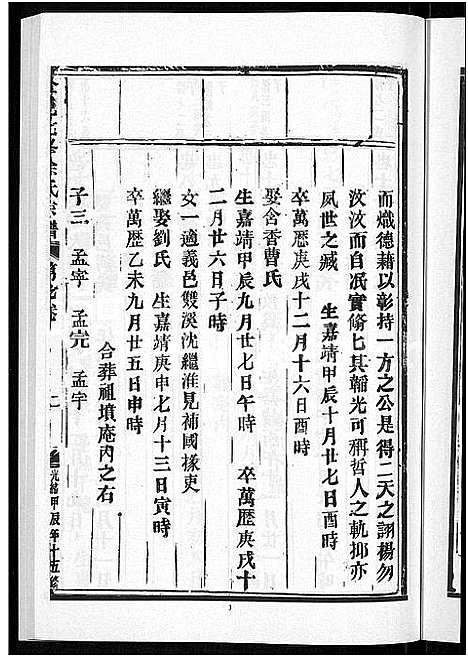 而熾德藉以彰持一方之公是得二天之詡揚勿
汶汶而自冺實脩匕其韜光可稱哲人之軌抑亦
夙世之臧　生嘉靖甲辰十月廿七日酉時
卒萬歷庚戌十二月十六日酉時
娶舍香曹氏
生嘉靖甲辰九月廿七日午時　卒萬歷庚戌十
二月廿六日子時
女一適義邑雙溪沈繼淮見補國掾吏
繼娶劉氏　生嘉靖庚申七月十三日寅時
卒萬歷乙未九月廿五日申時
合葬祖墳庵內之右
子三　孟寧　孟完　孟宇
氏宗譜　第 卷　二　光緒甲辰年十五修